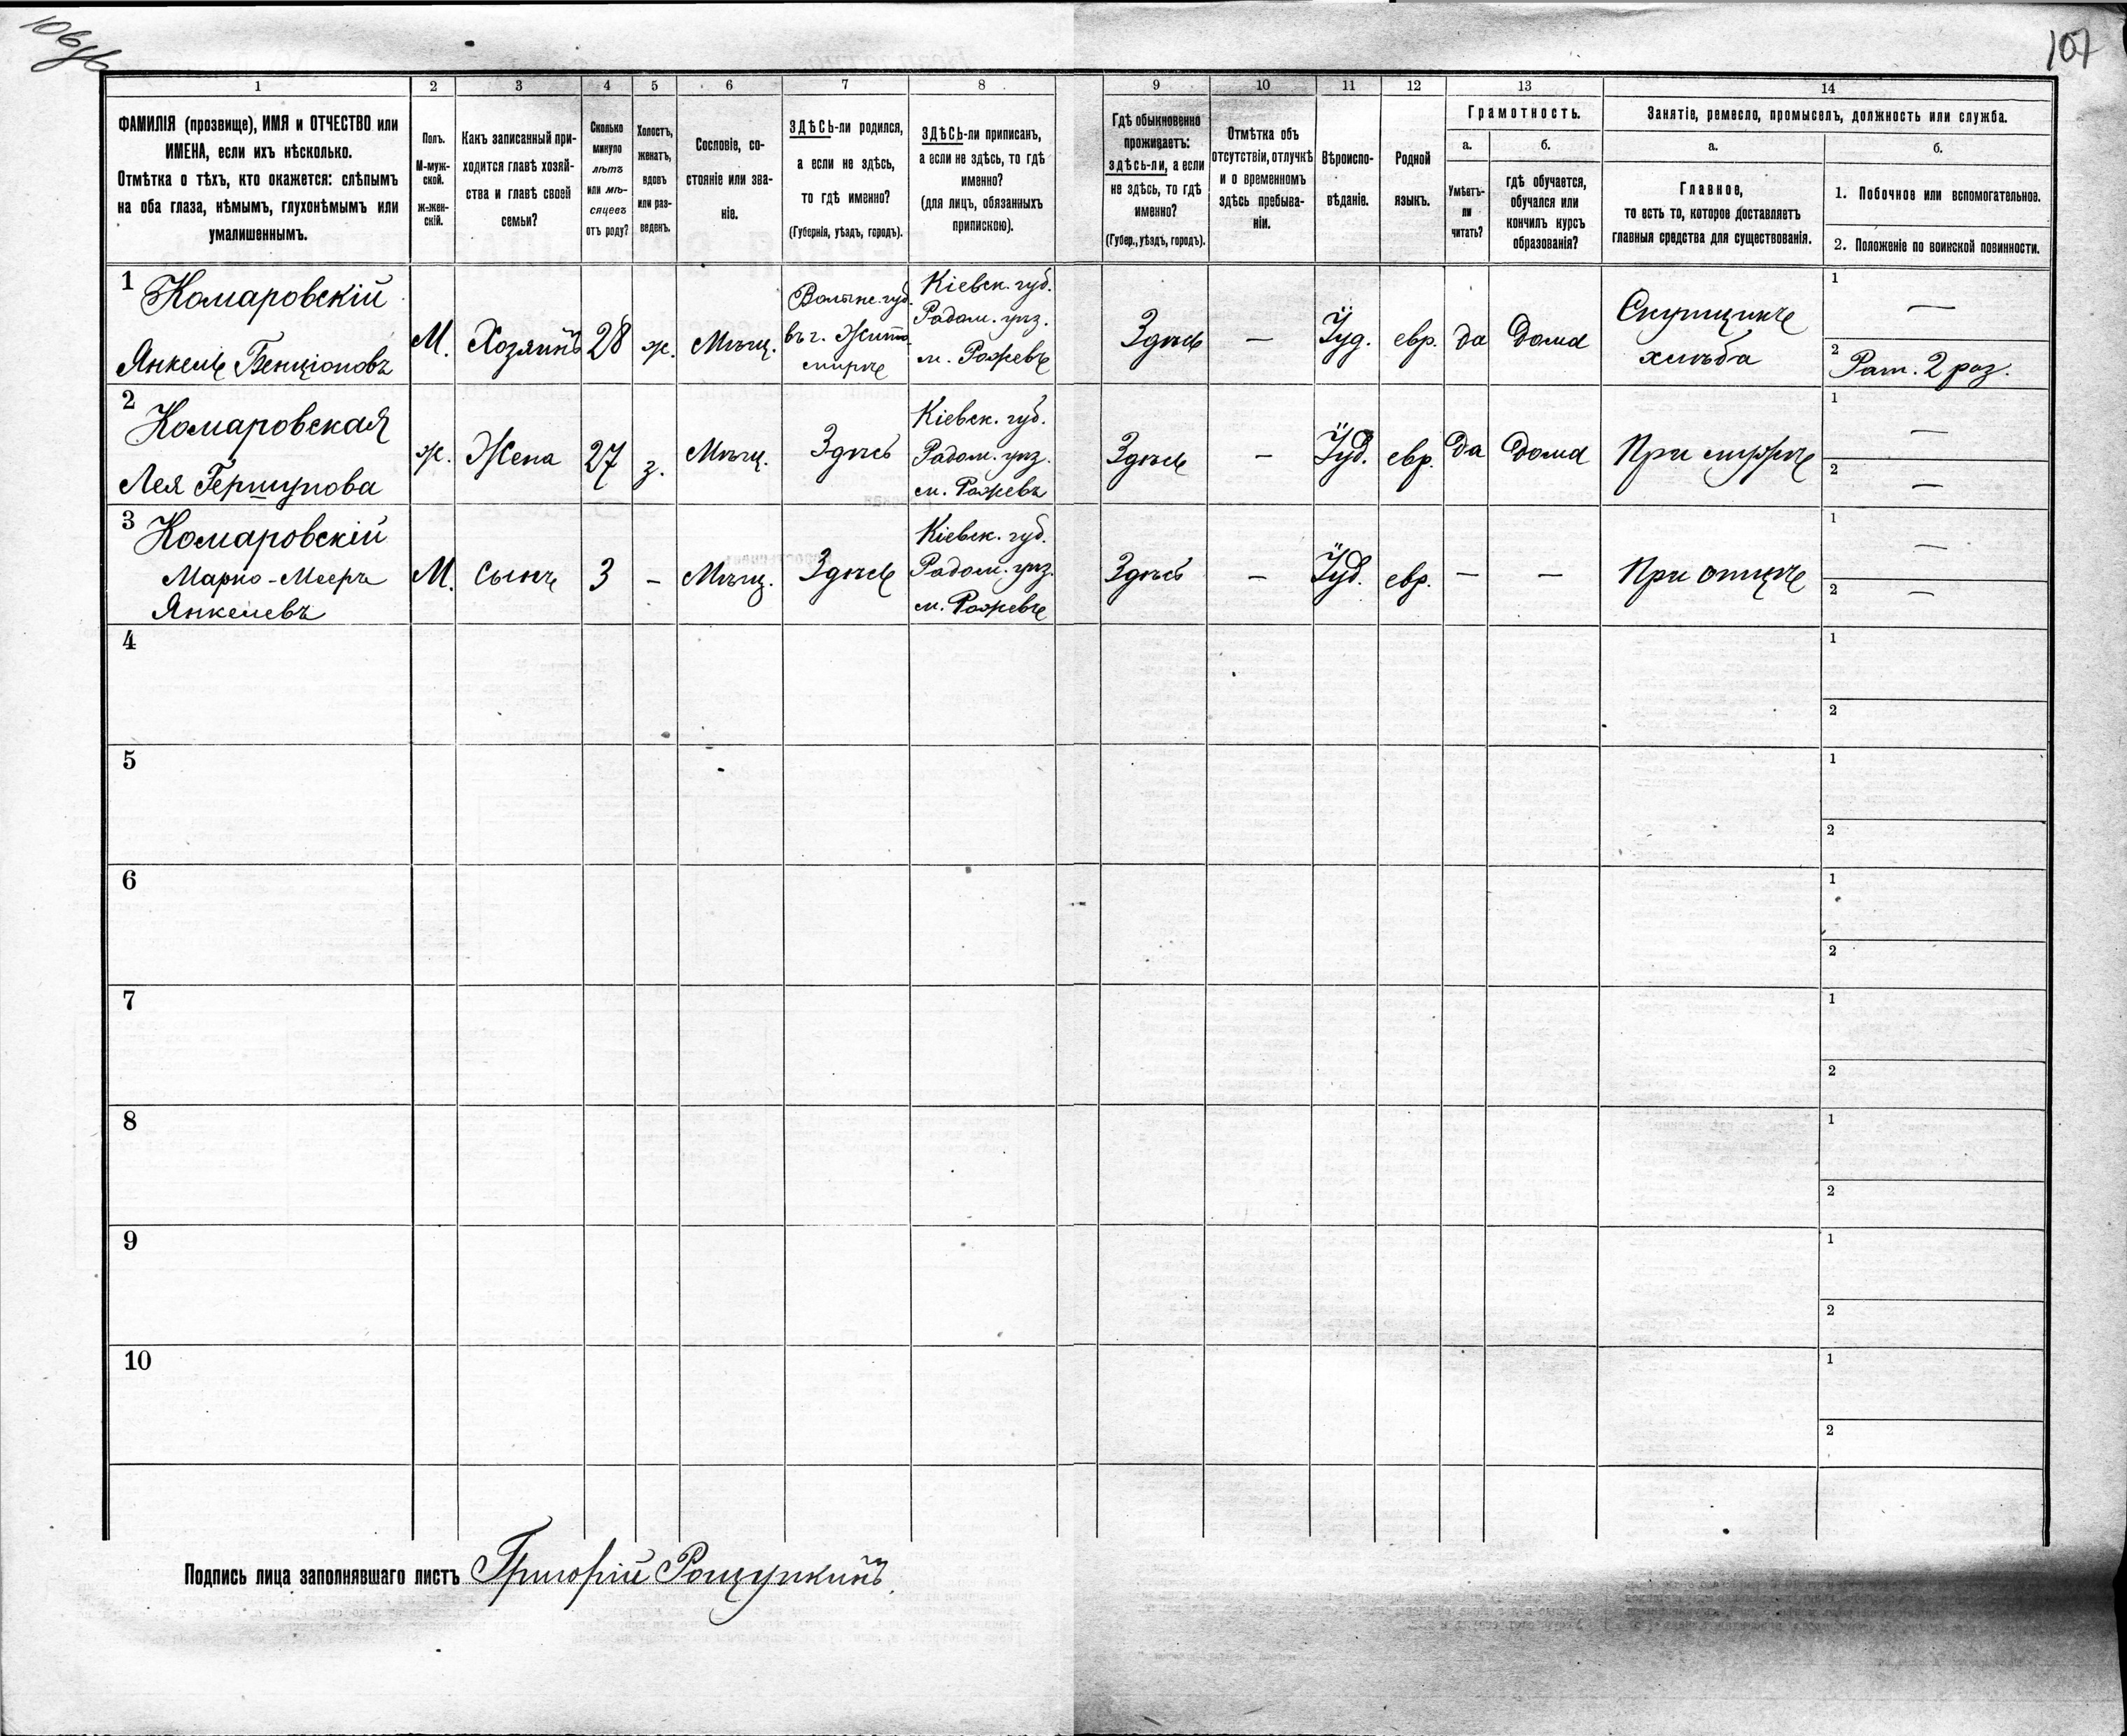 106об
107
1
2
3
4
5
6
7
8
9
10
11
12
13
14
ФАМИЛІЯ (прозвище), ИМЯ и ОТЧЕСТВО или
ИМЕНА, если ихъ нѣсколько.
Отмѣтка о тѣхъ, кто окажется: слѣпымъ
на оба глаза, нѣмымъ, глухонѣмымъ или
умалишеннымъ.
Полъ.
М-муж-
ской.
ж-жен-
скій.
Какъ записанный при-
ходится главѣ хозяй-
ства и главѣ своей
семьи?
Сколько
минуло
лѣтъ
или мѣ-
сяцевъ
отъ роду?
Холостъ,
женатъ,
вдовъ
или раз-
веденъ.
Сословіе, со-
стояніе или зва-
ніе.
ЗДѢСЬ-ли родился,
а если не здѣсь,
то гдѣ именно?
(Губернія, уѣздъ, городъ).
ЗДѢСЬ-ли приписанъ,
а если не здѣсь, то гдѣ
именно?
(для лицъ, обязанныхъ
припискою).
Гдѣ обыкновенно
проживаетъ:
здѣсь-ли, а если
не здѣсь, то гдѣ
именно?
(Губер., уѣздъ, городъ).
Отмѣтка объ
отсутствіи, отлучкѣ
и о временномъ
здѣсь пребыва-
ніи.
Вѣроиспо-
вѣданіе.
Родной
языкъ.
Грамотность.
а.
Умѣетъ-
ли
читать?
б.
гдѣ обучается,
обучался или
кончилъ курсъ
образованія?
Занятіе, ремесло, промыселъ, должность или служба.
а.
Главное,
то есть то, которое доставляетъ
главныя средства для существованія.
б.
1. Побочное или вспомогательное.
2. Положеніе по воинской повинности.
1
Комаровскій
Янкель Бенціоновъ
М.
Хозяинъ
28
ж.
Мѣщ.
Волынс. губ.
въ г. Жито-
мирѣ
Кіевск. губ.
Радом. уѣз.
м. Рожевъ
Здѣсь
—
Іуд.
евр.
да
Дома
Скупщикъ
хлѣба
1
—
2
Рат. 2 раз.
2
Комаровская
Лея Гершунова
ж.
Жена
27
з.
Мѣщ.
Здѣсь
Кіевск. губ.
Радом. уѣз.
м. Рожевъ
Здѣсь
—
Іуд.
евр.
Да
Дома
При мужѣ
1
—
2
—
3
Комаровскій
Марко-Мееръ
Янкелевъ
М.
Сынъ
3
—
Мѣщ.
Здѣсь
Кіевск. губ.
Радом. уѣз.
м. Рожевъ
Здѣсь
—
Іуд.
евр.
—
—
При отцѣ
1
—
2
—
4
1
2
5
1
2
6
1
2
7
1
2
8
1
2
9
1
2
10
1
2
Подпись лица заполнявшаго листъ Григорій Рощупкинъ